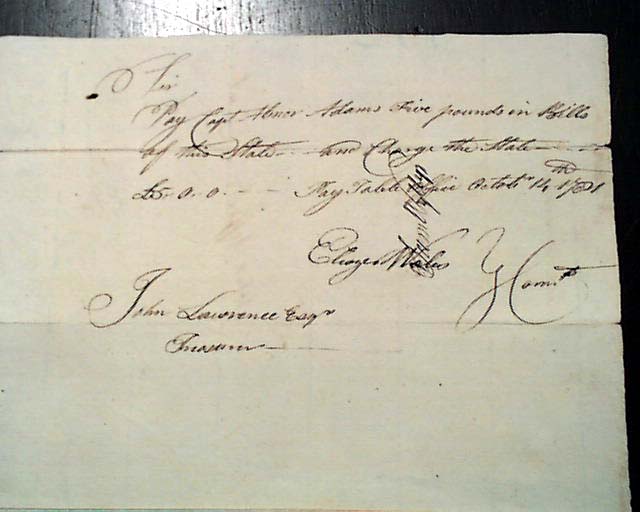 Sir
Pay Capt Abner Adams Five pounds in Bills
of this State and Charge the State
£5.0.0 Pay Table Office Octobr 14th 1781
Eleazr Wales } Comte
John Lawrence Esqr
Treasurer